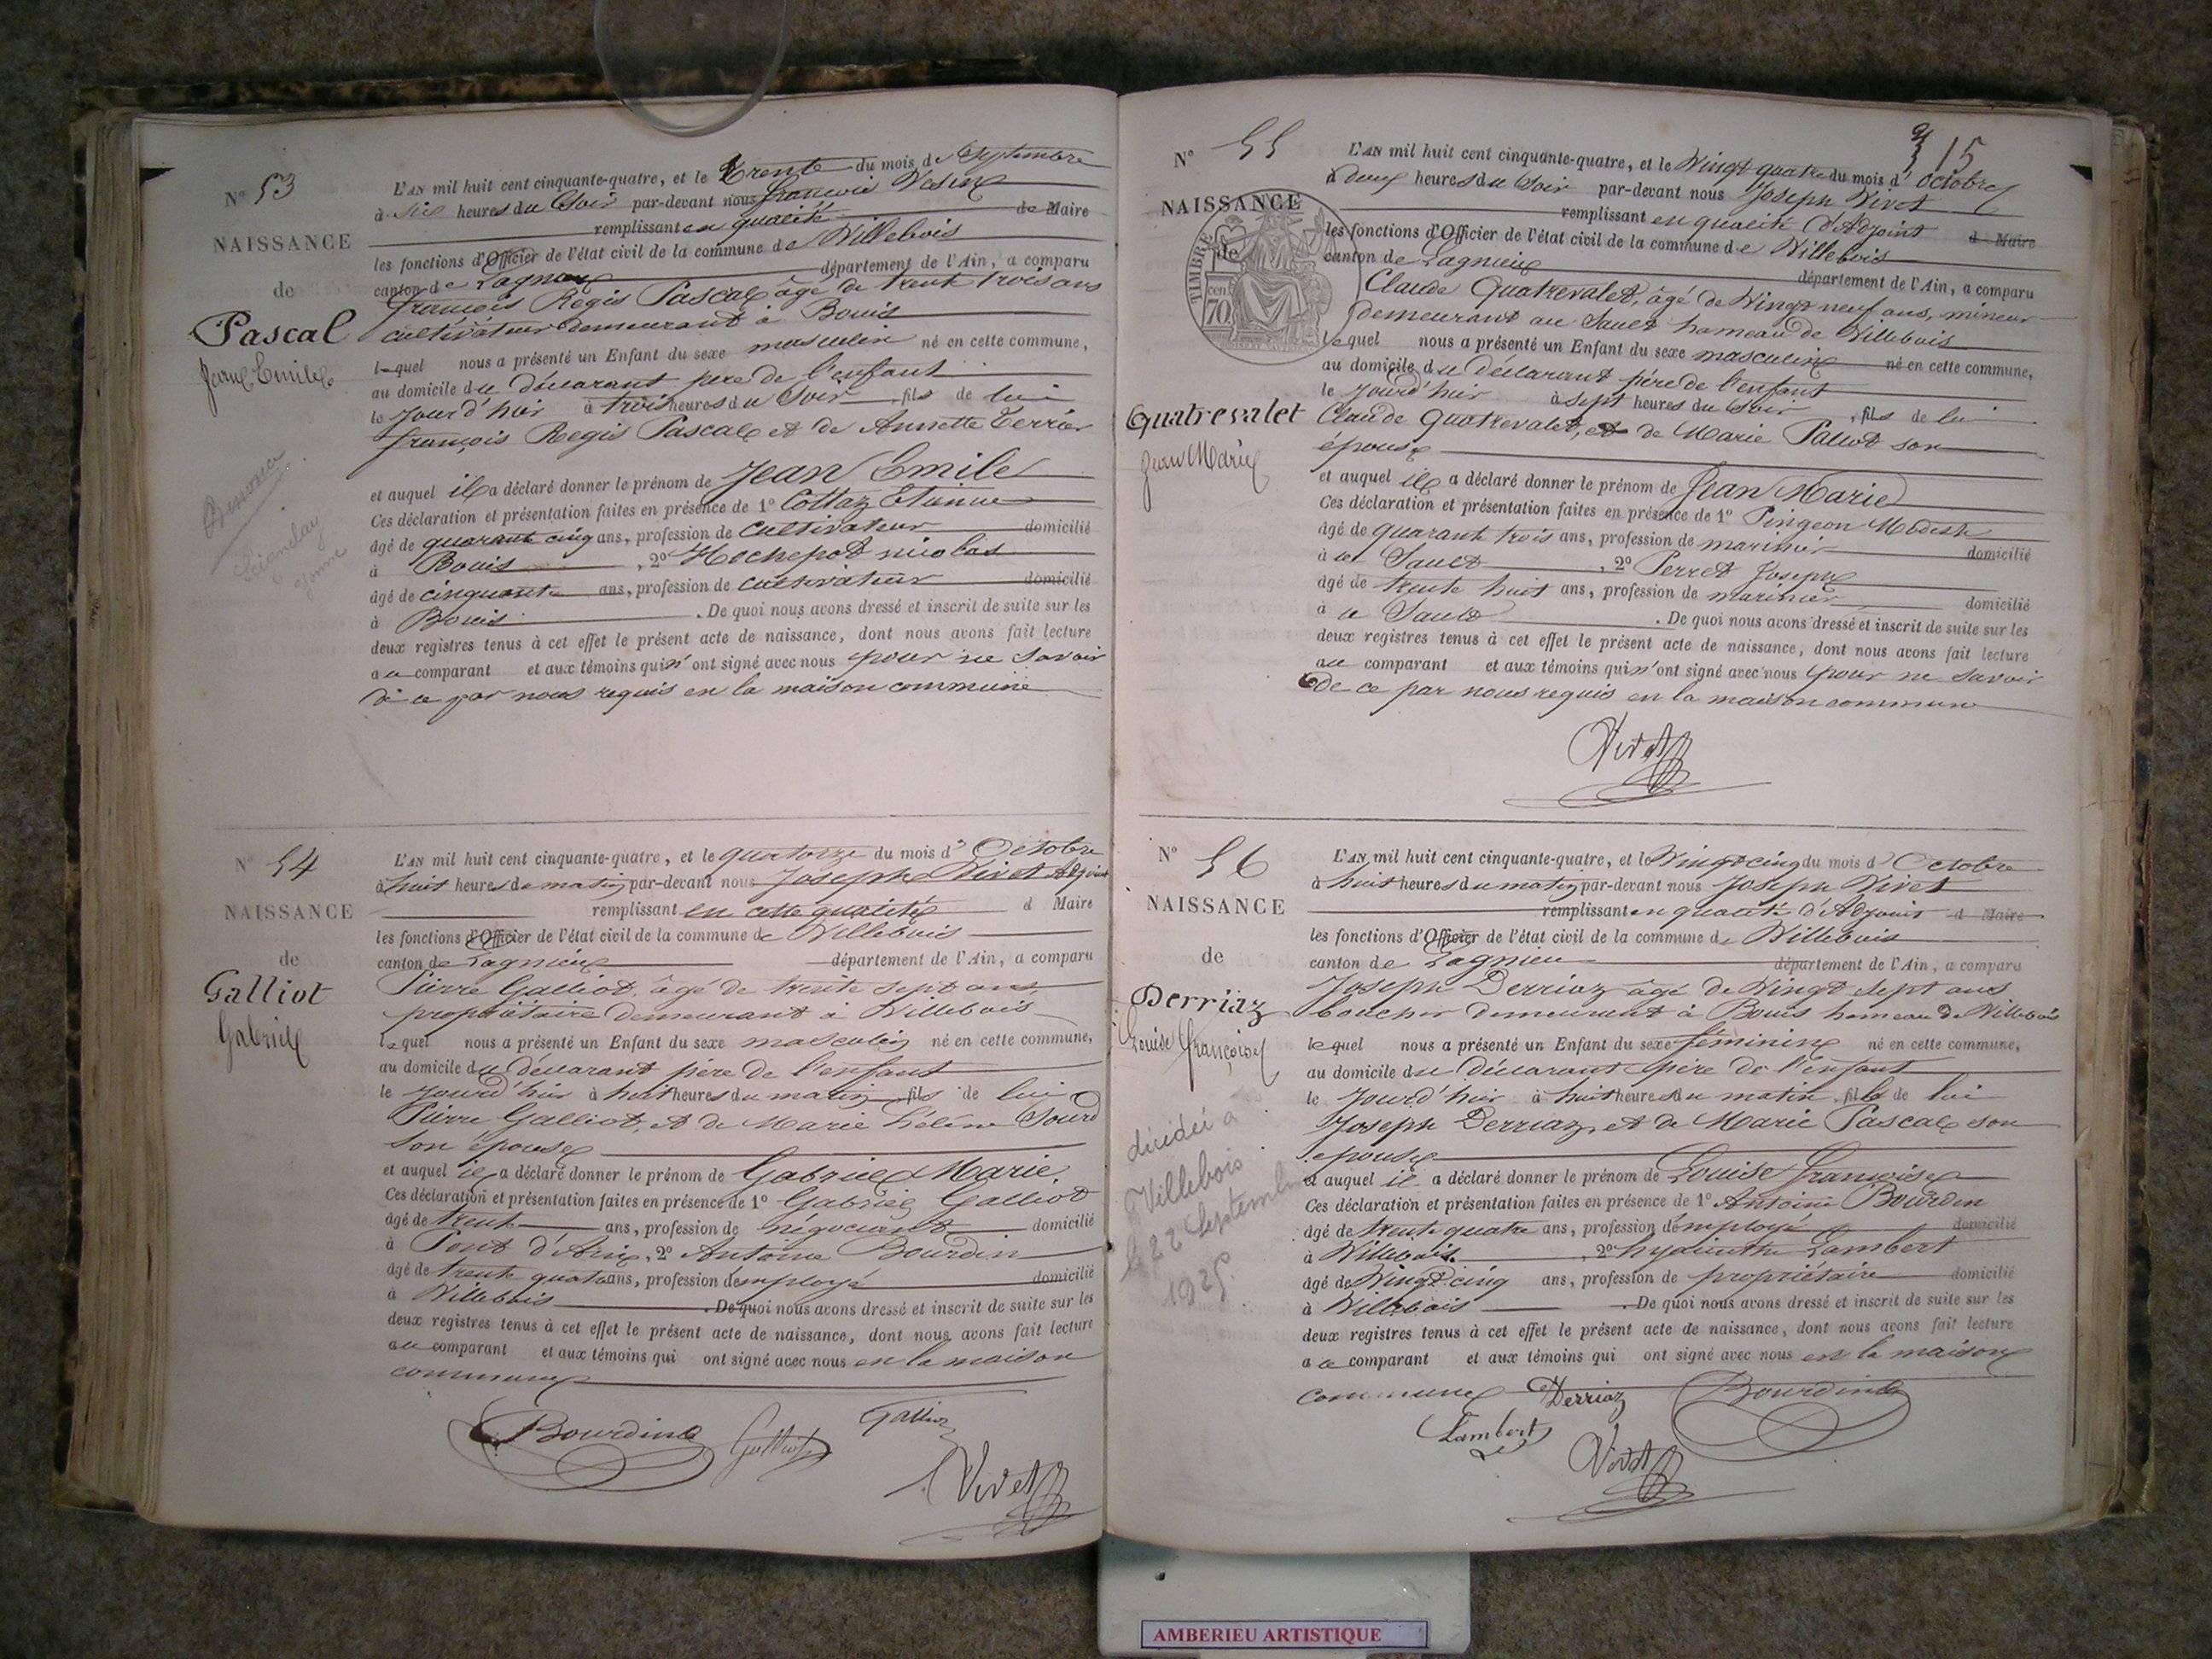 N° 53
NAISSANCE
de
Pascal
Jean Emile
L'AN mil huit cent cinquante-quatre, et le Trente du mois de Septembre
à six heures du Soir par-devant nous françois Vesin
remplissant en qualité de Maire
les fonctions d'Officier de l'état civil de la commune de Villebois
canton de Lagnieu département de l'Ain, a comparu
françois Régis Pascal âgé de trente trois ans
cultivateur demeurant à Bouis
lequel nous a présenté un Enfant du sexe masculin né en cette commune,
au domicile du déclarant père de l'enfant
le jourd'hier à trois heures du Soir, fils de lui
françois Régis Pascal et de Annette Terrier
et auquel il a déclaré donner le prénom de Jean Emile
Ces déclaration et présentation faites en présence de 1° Cottaz Etienne
âgé de quarante cinq ans, profession de cultivateur domicilié
à Bouis, 2° Hochepot nicolas
âgé de cinquante ans, profession de cultivateur domicilié
à Bouis. De quoi nous avons dressé et inscrit de suite sur les
deux registres tenus à cet effet le présent acte de naissance, dont nous avons fait lecture
au comparant et aux témoins qui n'ont signé avec nous pour ne savoir
de ce par nous requis en la maison commune
N° 54
NAISSANCE
de
Galliot
Gabriel
L'AN mil huit cent cinquante-quatre, et le quatorze du mois d'Octobre
à huit heures de matin par-devant nous Joseph Vivet Adjoint
remplissant en cette qualité d Maire
les fonctions d'Officier de l'état civil de la commune de Villebois
canton de Lagnieu département de l'Ain, a comparu
Pierre Galliot, âgé de trente sept ans
propriétaire demeurant à Villebois
lequel nous a présenté un Enfant du sexe masculin né en cette commune,
au domicile du déclarant père de l'enfant
le jourd'hier à huit heures du matin, fils de lui
Pierre Galliot, et de Marie hélène Sourd
son épouse
et auquel il a déclaré donner le prénom de Gabriel Marie.
Ces déclaration et présentation faites en présence de 1° Gabriel Galliot
âgé de trente ans, profession de négociant domicilié
à Pont d'Ain, 2° Antoine Bourdin
âgé de trente quatre ans, profession d'employé domicilié
à Villebois. De quoi nous avons dressé et inscrit de suite sur les
deux registres tenus à cet effet le présent acte de naissance, dont nous avons fait lecture
au comparant et aux témoins qui ont signé avec nous en la maison
commune
Bourdin Galliot Galliot
Vivet
15
N° 55
NAISSANCE
de
TIMBRE
cen
70
Quatrevalet
Jean Marie
L'AN mil huit cent cinquante-quatre, et le Vingt quatre du mois d'octobre
à deux heures du Soir par-devant nous Joseph Vivet
remplissant en qualité d'Adjoint d Maire
les fonctions d'Officier de l'état civil de la commune de Villebois
canton de Lagnieu département de l'Ain, a comparu
Claude Quatrevalet, âgé de Vingt neuf ans, mineur
demeurant au Sault hameau de Villebois
lequel nous a présenté un Enfant du sexe masculin né en cette commune,
au domicile du déclarant père de l'enfant
le jourd'hier à sept heures du Soir, fils de lui
Claude Quatrevalet, et de Marie Pallot son
épouse
et auquel il a déclaré donner le prénom de Jean Marie
Ces déclaration et présentation faites en présence de 1° Pingeon Modeste
âgé de quarante trois ans, profession de marinier domicilié
à le Sault, 2° Perret Joseph
âgé de trente huit ans, profession de marinier domicilié
à le Sault. De quoi nous avons dressé et inscrit de suite sur les
deux registres tenus à cet effet le présent acte de naissance, dont nous avons fait lecture
au comparant et aux témoins qui n'ont signé avec nous pour ne savoir
de ce par nous requis en la maison commune
Vivet
N° 56
NAISSANCE
de
Derriaz
Louise Françoise
décédée à
Villebois
le 22 Septembre
L'AN mil huit cent cinquante-quatre, et le Vingt cinq du mois d'Octobre
à huit heures du matin par-devant nous Joseph Vivet
remplissant en qualité d'Adjoint d Maire
les fonctions d'Officier de l'état civil de la commune de Villebois
canton de Lagnieu département de l'Ain, a comparu
Joseph Derriaz âgé de Vingt sept ans
boucher demeurant à Bouis hameau de Villebois
lequel nous a présenté un Enfant du sexe féminin né en cette commune,
au domicile du déclarant père de l'enfant
le jourd'hier à huit heures du matin, fille de lui
Joseph Derriaz, et de Marie Pascal son
épouse
et auquel il a déclaré donner le prénom de Louise françoise
Ces déclaration et présentation faites en présence de 1° Antoine Bourdin
âgé de trente quatre ans, profession d'employé domicilié
à Villebois, 2° hyacinthe Lambert
âgé de Vingt cinq ans, profession de propriétaire domicilié
à Villebois. De quoi nous avons dressé et inscrit de suite sur les
deux registres tenus à cet effet le présent acte de naissance, dont nous avons fait lecture
au comparant et aux témoins qui ont signé avec nous en la maison
commune Derriaz Bourdin
Lambert
Vivet
AMBERIEU ARTISTIQUE